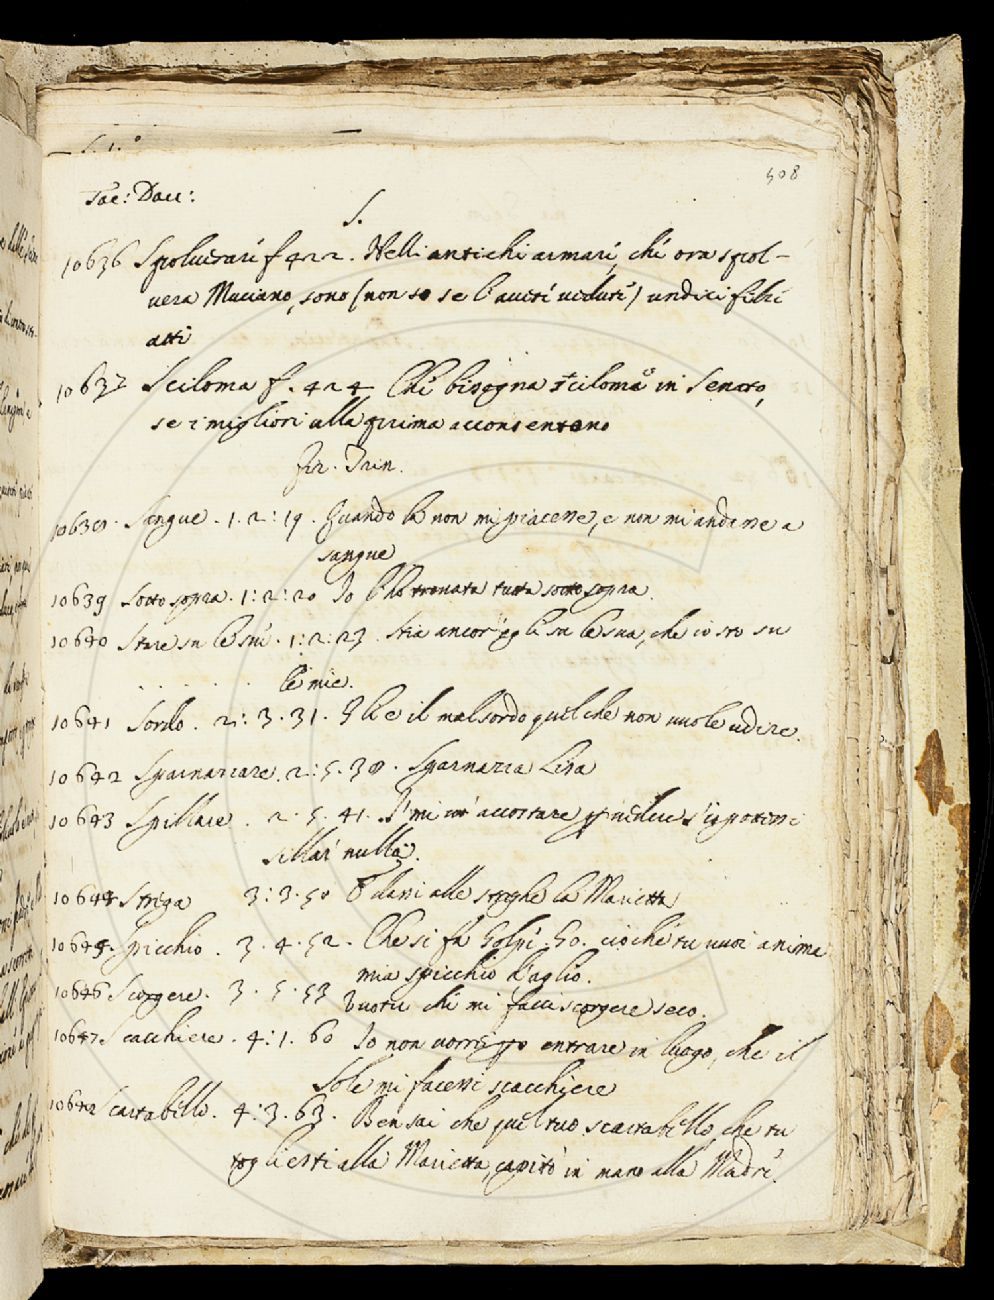 508
Tac: Dau:
S.
10636 Spolverari f 422. Nelli antichi armari, chi ora spol-
vera Muciano, sono (non so se l'aveti veduti) undici filzi
atti
10637 Sciloma f. 424 Chi bisogna sciloma in Senato,
se i migliori alla prima acconsentono
fir. Trin.
10638. Sangue. 1. 2: 19. Quando la non mi piacesse, e non mi andasse a
sangue
10639 Sotto sopra. 1: 2: 20 Io l'ho tronata tutta sotto sopra.
10640 Stare su le sue. 1: 2: 23. Stia ancor egli su le sua, che io sto su
le mie.
10641 Sordo. 2: 3. 31. Gli e il mal sordo quel che non vuole udire.
10642 Sgarnariare. 2: 5. 38. Sgarnaria Lisa
10643 Spillare. 2. 5. 41. I' mi vo' accostare per vedere s'io potessi
sillar nulla.
10644 Striga 3: 3. 50 dassi alle streghe la Marietta
10645. Spicchio. 3. 4. 52. Che si fa Golpi. Go. cioché tu vuoi anima
mia spicchio d'aglio.
10646 Scorgere. 3. 5. 53 Vuotu chi mi facci scorgere seco.
10647 Scacchiere. 4: 1. 60 Io non vorrei entrare in luogo, che il
Sole mi facessi scacchiere
10648 Scartabello. 4: 3. 63. Ben sai che quel tuo scartabello che tu
togliesti alla Marietta, capitò in mano alla Madre.